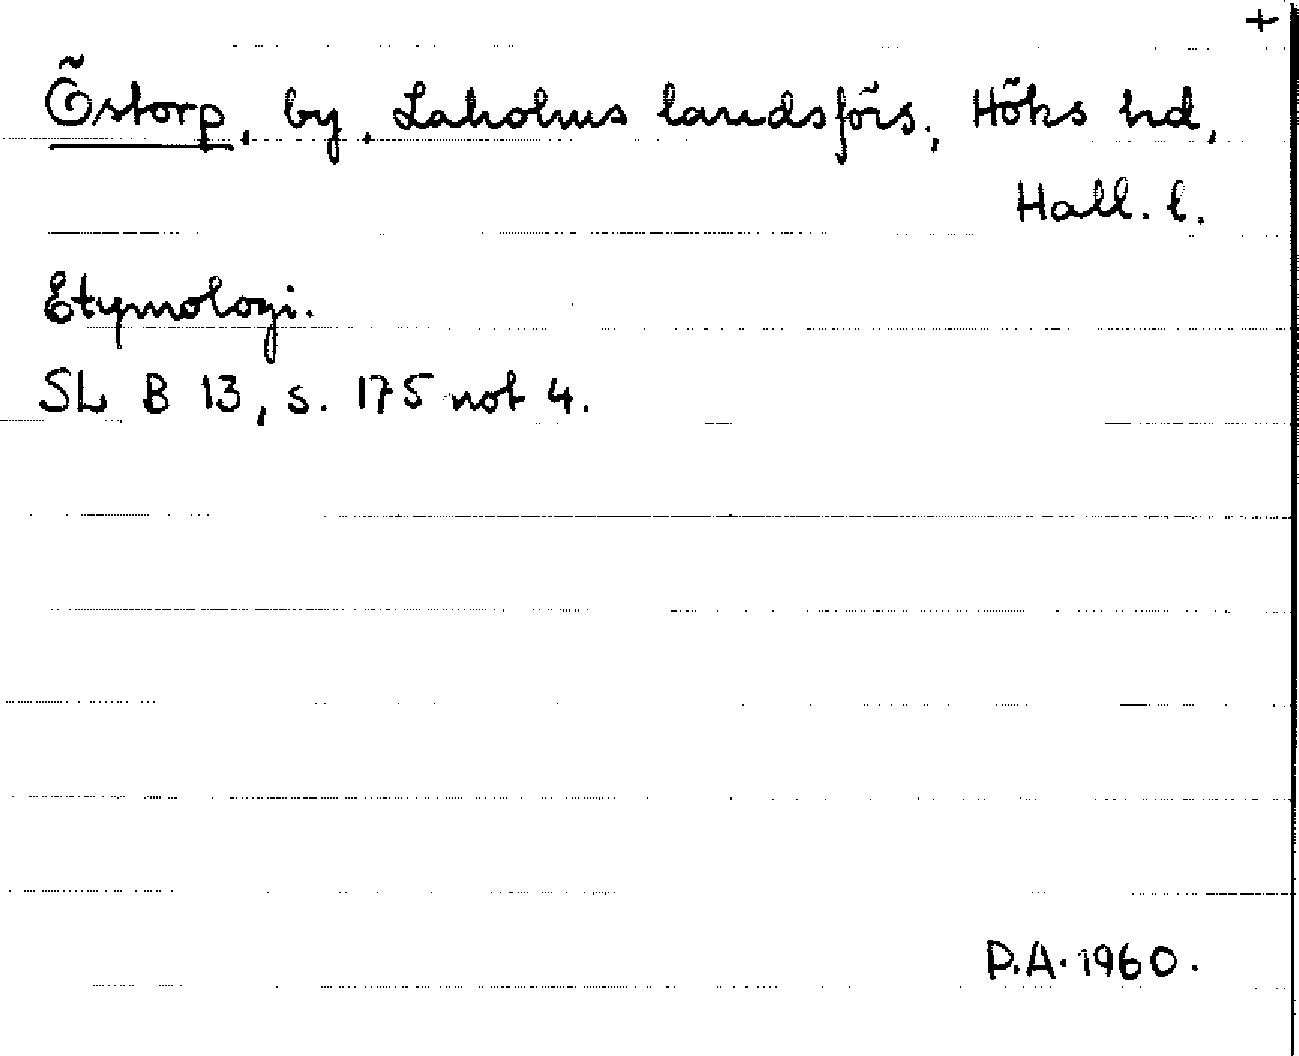 +
Östorp, by, Laholms landsförs., Höks hd,
Hall. l.
Etymologi.
SL B 13, s. 175 not 4.
P.A. 1960.